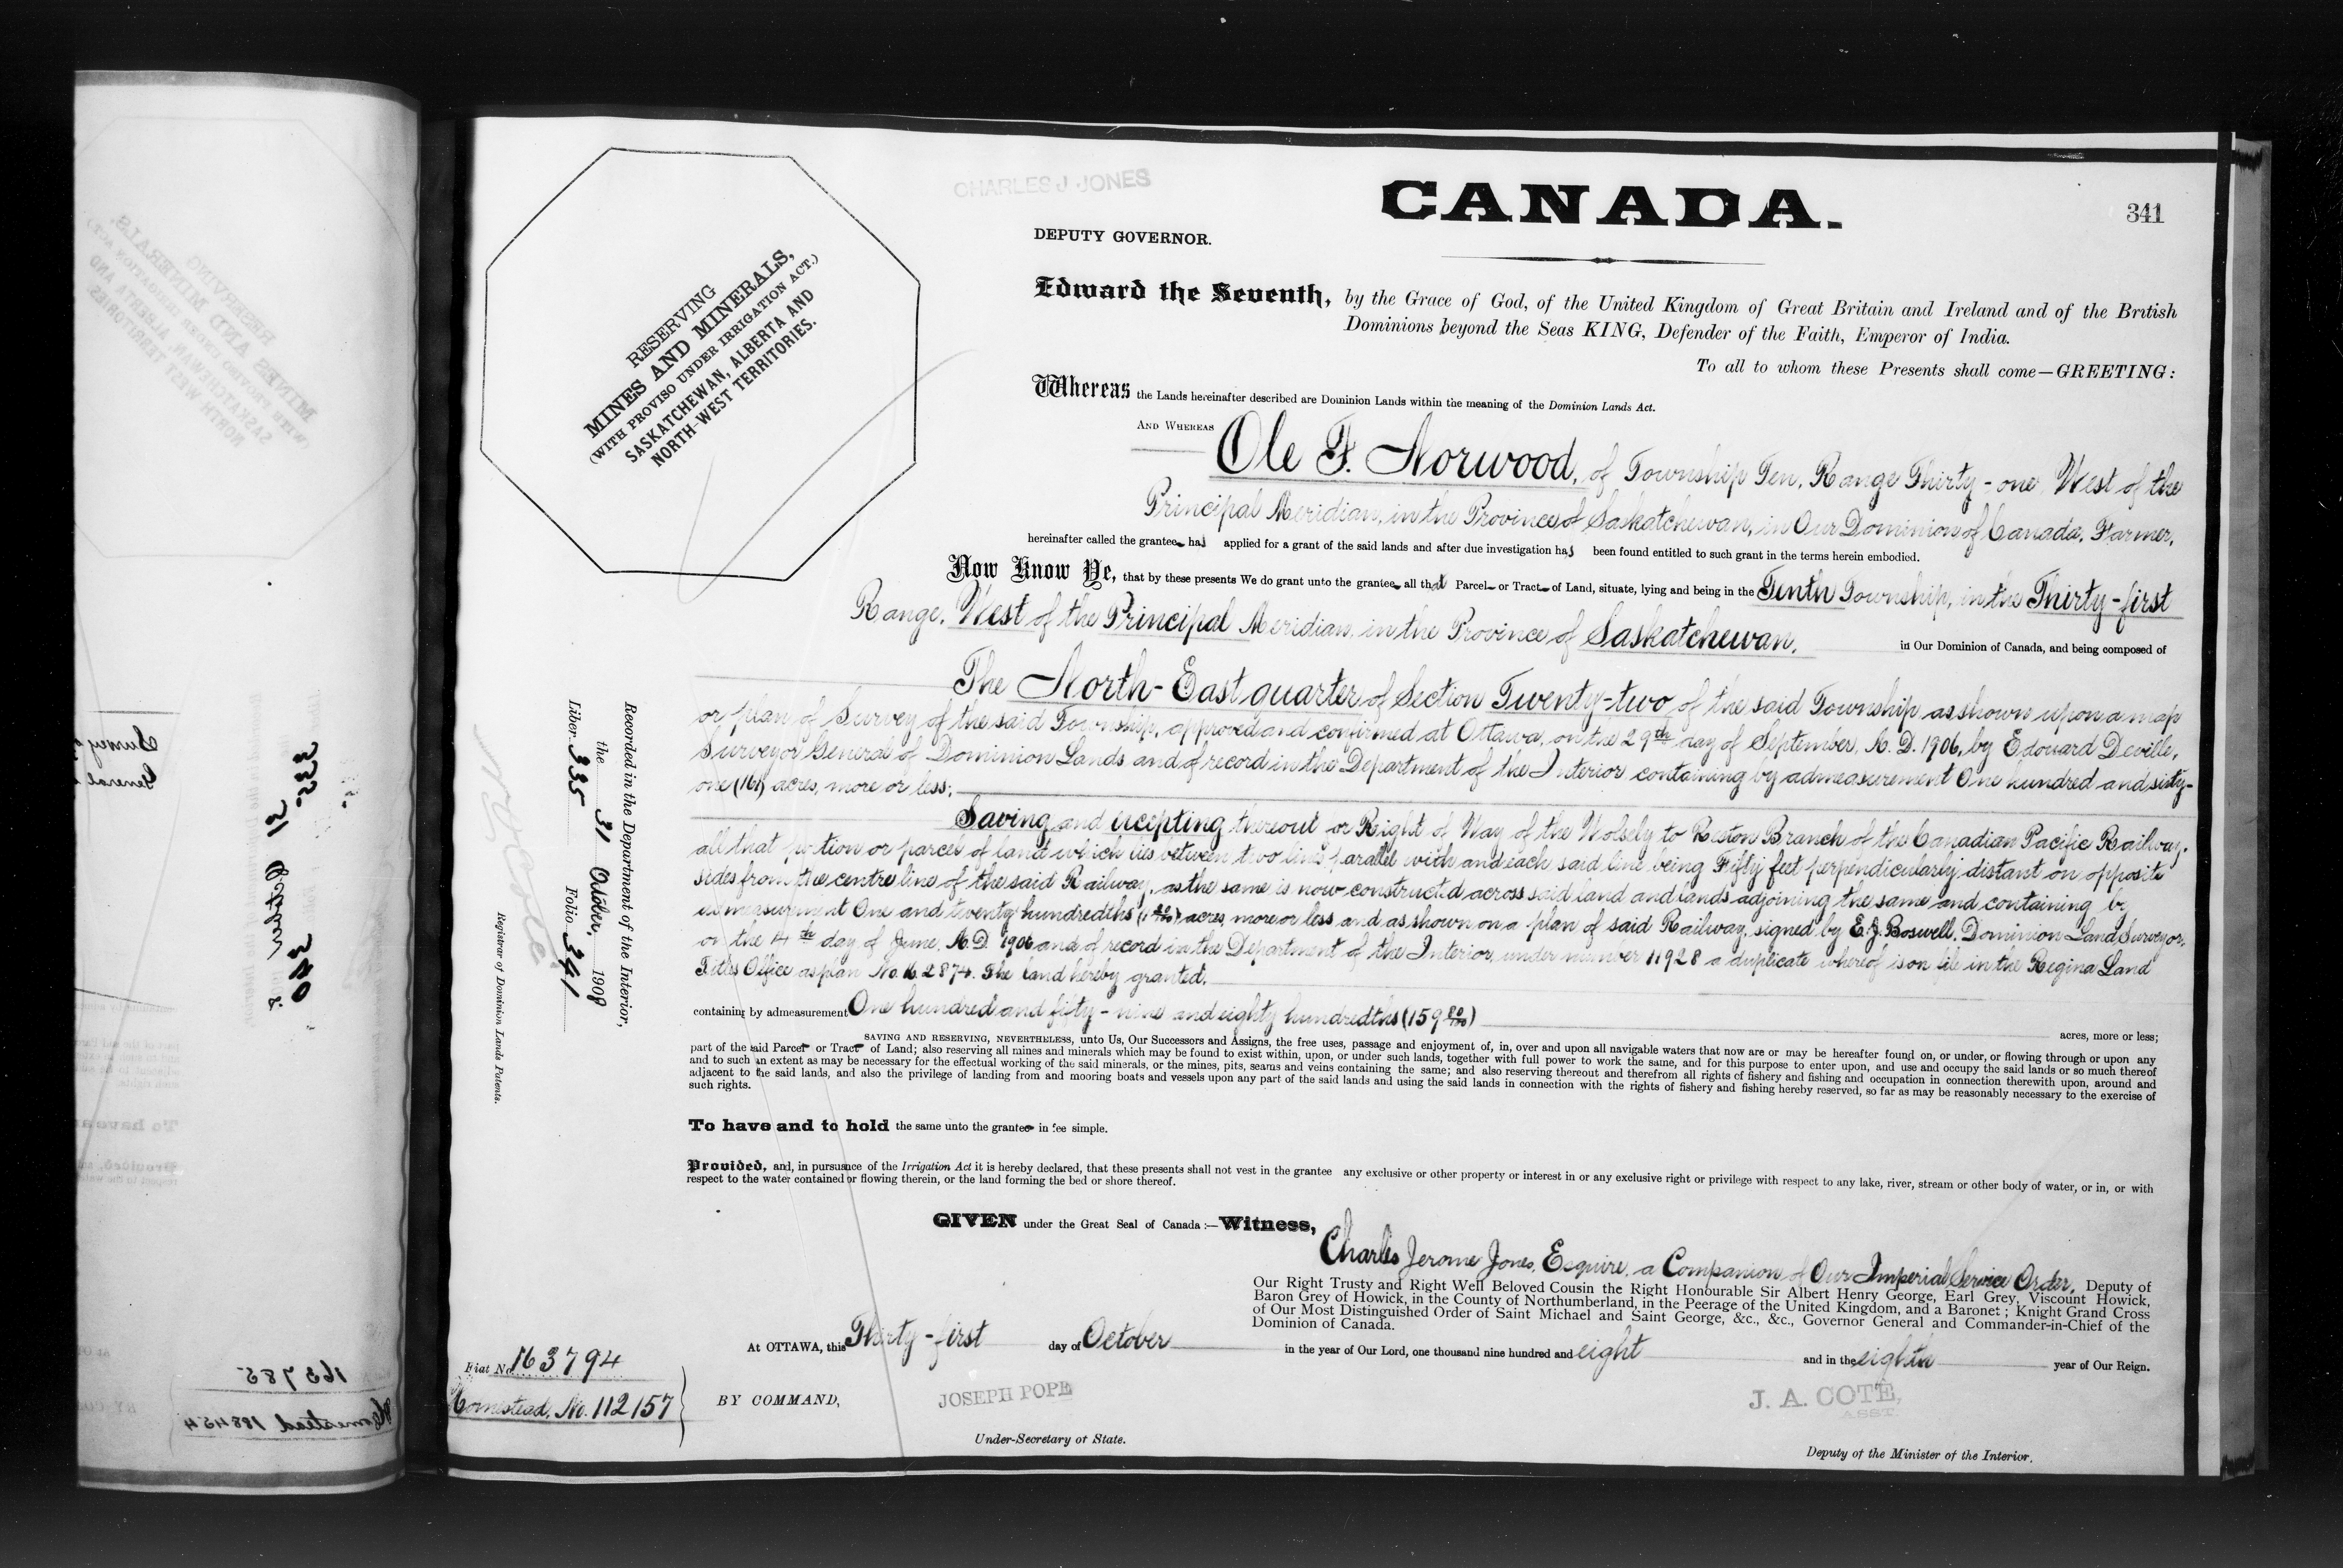 CHARLES J. JONES
CANADA.
341
DEPUTY GOVERNOR.
Edward the Seventh, by the Grace of God, of the United Kingdom of Great Britain and Ireland and of the British
Dominions beyond the Seas KING, Defender of the Faith, Emperor of India.
To all to whom these Presents shall come—GREETING:
RESERVING
MINES AND MINERALS,
(WITH PROVISO UNDER IRRIGATION ACT.)
SASKATCHEWAN, ALBERTA AND
NORTH-WEST TERRITORIES.
Whereas the Lands hereinafter described are Dominion Lands within the meaning of the Dominion Lands Act.
AND WHEREAS Ole F. Norwood, of Township Ten, Range Thirty-one West of the
Principal Meridian, in the Province of Saskatchewan, in Our Dominion of Canada, Farmer,
hereinafter called the grantee has applied for a grant of the said lands and after due investigation has been found entitled to such grant in the terms herein embodied.
Now Know Ye, that by these presents We do grant unto the grantee all that Parcel or Tract of Land, situate, lying and being in the Tenth Township, in the Thirty-first
Range, West of the Principal Meridian, in the Province of Saskatchewan, in Our Dominion of Canada, and being composed of
The North-East quarter of Section Twenty-two of the said Township, as shown upon a map
or plan of Survey of the said Township, approved and confirmed at Ottawa, on the 29th day of September, A. D. 1906, by Edouard Deville,
Surveyor General of Dominion Lands and of record in the Department of the Interior containing by admeasurement One hundred and sixty-
one (161) acres, more or less;
Saving and excepting thereout or Right of Way of the Wolsely to Reston Branch of the Canadian Pacific Railway,
all that portion or parcel of land which lies between two lines parallel with and each said line being Fifty feet perpendicularly distant on opposite
sides from the centre line of the said Railway, as the same is now constructed across said land and lands adjoining the same and containing by
admeasurement One and twenty hundredths (1 20/100) acres, more or less and as shown on a plan of said Railway, signed by E. J. Boswell, Dominion Land Surveyor,
on the 4th day of June, A. D. 1906 and of record in the Department of the Interior, under number 11928 a duplicate whereof is on file in the Regina Land
Titles Office as plan No. 2874. The land hereby granted,
containing by admeasurement One hundred and fifty-nine and eighty hundredths (159 80/100) acres, more or less;
SAVING AND RESERVING, NEVERTHELESS, unto Us, Our Successors and Assigns, the free uses, passage and enjoyment of, in, over and upon all navigable waters that now are or may be hereafter found on, or under, or flowing through or upon any
part of the said Parcel or Tract of Land; also reserving all mines and minerals which may be found to exist within, upon, or under such lands, together with full power to work the same, and for this purpose to enter upon, and use and occupy the said lands or so much thereof
and to such an extent as may be necessary for the effectual working of the said minerals, or the mines, pits, seams and veins containing the same; and also reserving thereout and therefrom all rights of fishery and fishing and occupation in connection therewith upon, around and
adjacent to the said lands, and also the privilege of landing from and mooring boats and vessels upon any part of the said lands and using the said lands in connection with the rights of fishery and fishing hereby reserved, so far as may be reasonably necessary to the exercise of
such rights.
To have and to hold the same unto the grantee in fee simple.
Provided, and, in pursuance of the Irrigation Act it is hereby declared, that these presents shall not vest in the grantee any exclusive or other property or interest in or any exclusive right or privilege with respect to any lake, river, stream or other body of water, or in, or with
respect to the water contained or flowing therein, or the land forming the bed or shore thereof.
GIVEN under the Great Seal of Canada:—Witness,
Charles Jerome Jones, Esquire, a Companion of Our Imperial Service Order, Deputy of
Our Right Trusty and Right Well Beloved Cousin the Right Honourable Sir Albert Henry George, Earl Grey, Viscount Howick,
Baron Grey of Howick, in the County of Northumberland, in the Peerage of the United Kingdom, and a Baronet; Knight Grand Cross
of Our Most Distinguished Order of Saint Michael and Saint George, &c., &c., Governor General and Commander-in-Chief of the
Dominion of Canada.
At OTTAWA, this Thirty-first day of October in the year of Our Lord, one thousand nine hundred and eight and in the eighth year of Our Reign.
BY COMMAND,
JOSEPH POPE
Under-Secretary of State.
J. A. COTE,
ASST.
Deputy of the Minister of the Interior.
Fiat No. 163794
Homestead, No. 112157
Recorded in the Department of the Interior,
the 31 October, 1908
Liber 335 Folio 341
Registrar of Dominion Lands Patents.
335
31 October
340
163785
Homestead 188454